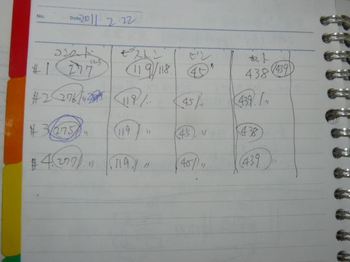 No.
2011 2.22
コンロッド ピストン ピン セット
#1 277 119/118 45 〃 438 439
#2 276/〃 119/〃 45/〃 439/〃
#3 275/〃 119/〃 45/〃 438
#4 277/〃 119/〃 45/〃 439/〃